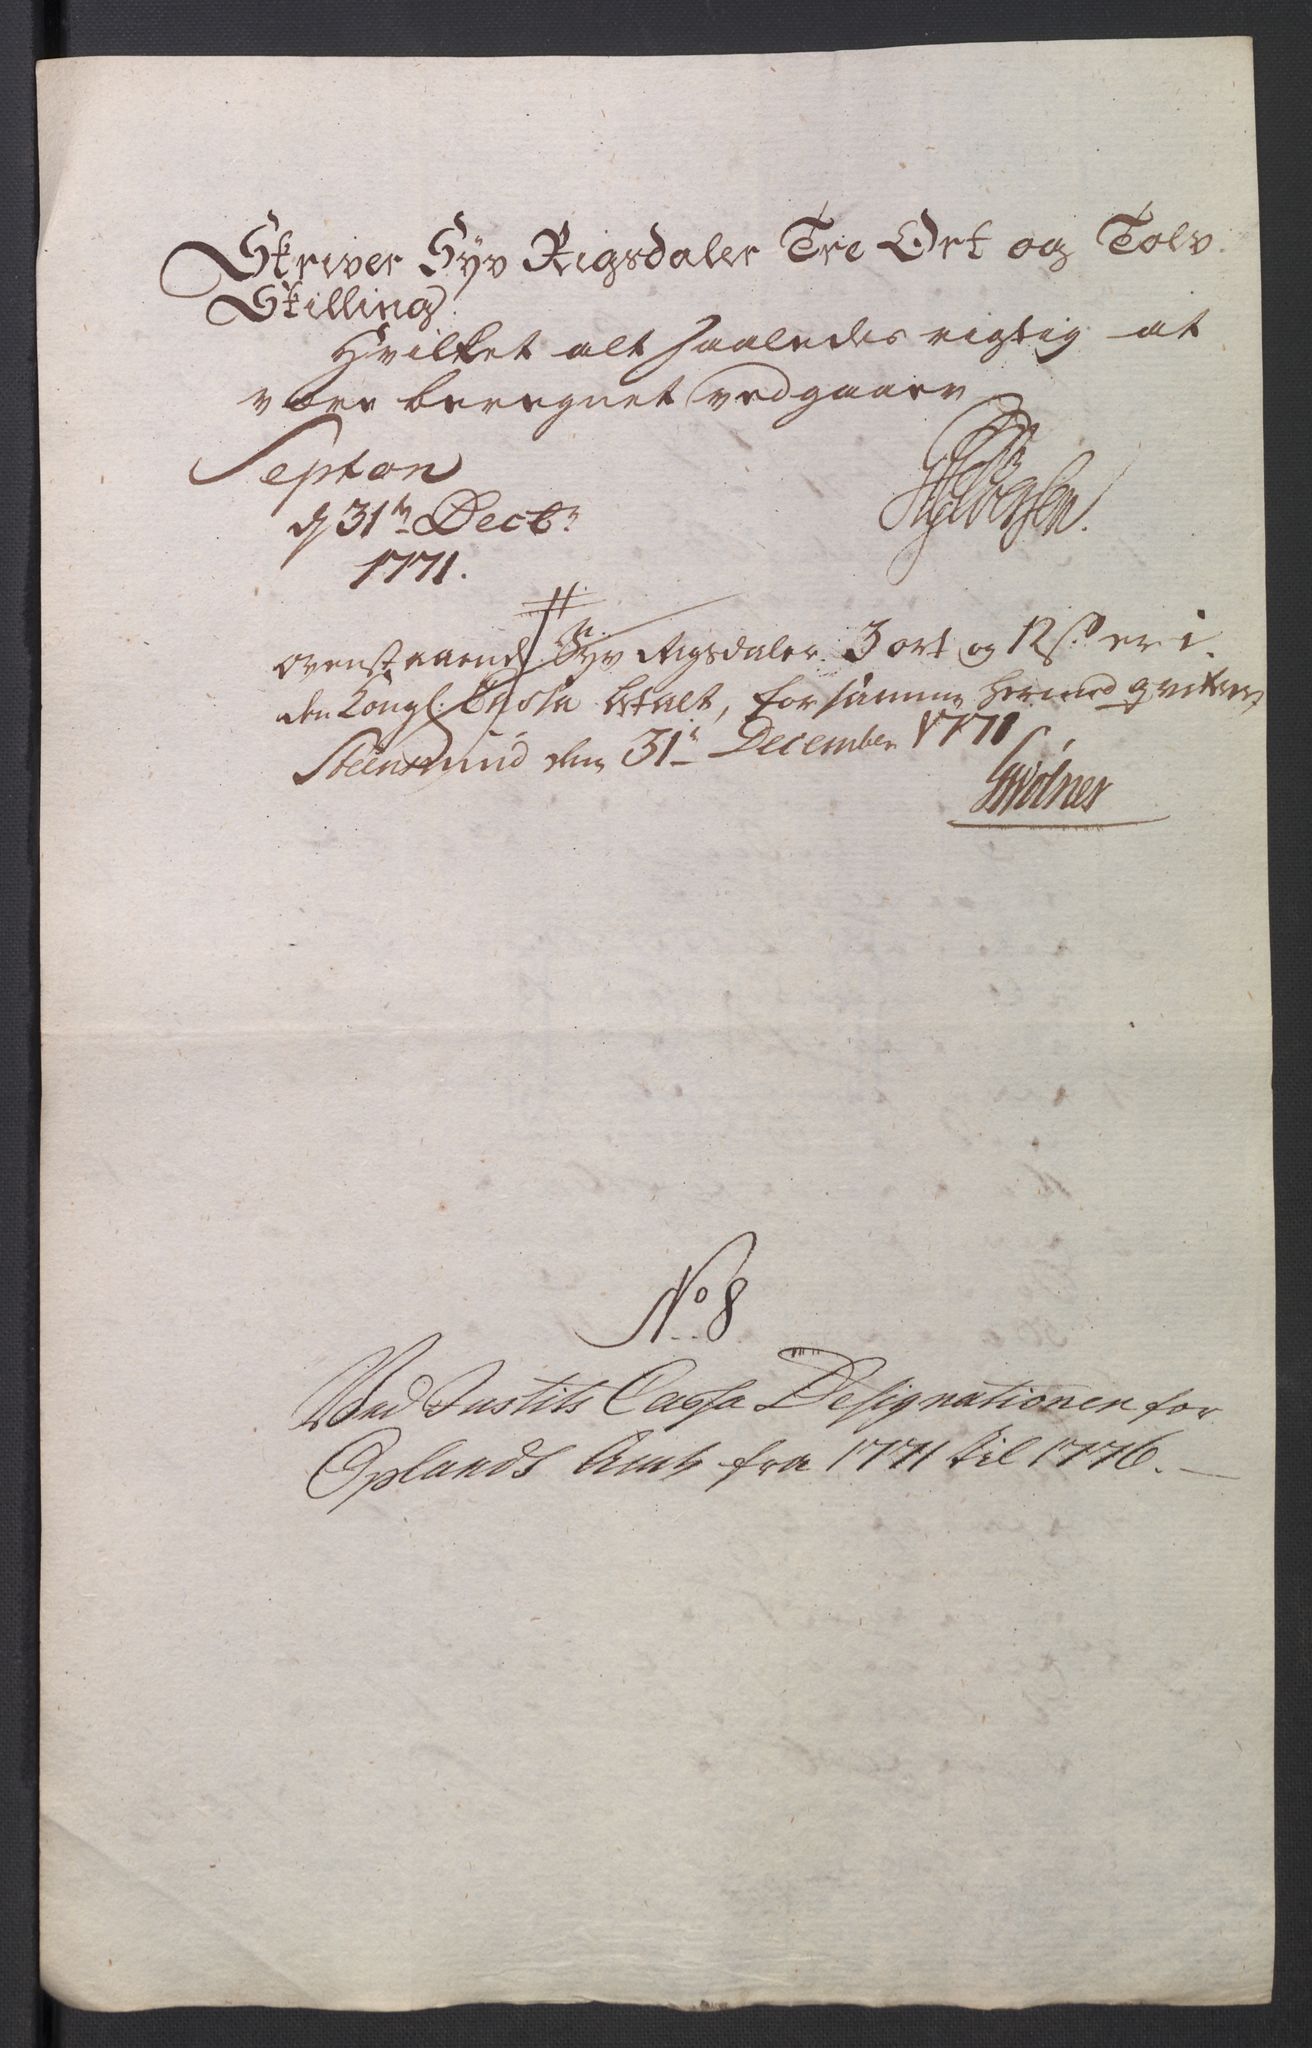 Skriver Syv Rigsdaler Tre Ort og Tolv
Skilling.
Hvilket alt saaledes rigtig at
være beregnet vedgaaer
Septon
d 31te Decbr
1771.
ovenstaaende Syv Rigsdaler 3 ort og 12 s. er i
den Kongl. Cassa betalt, for samme hermed qviteres,
Steensrud den 31te December 1771
No 8
Ved Justits Cassa Designationen for
Oplands Amt fra 1771 til 1776.